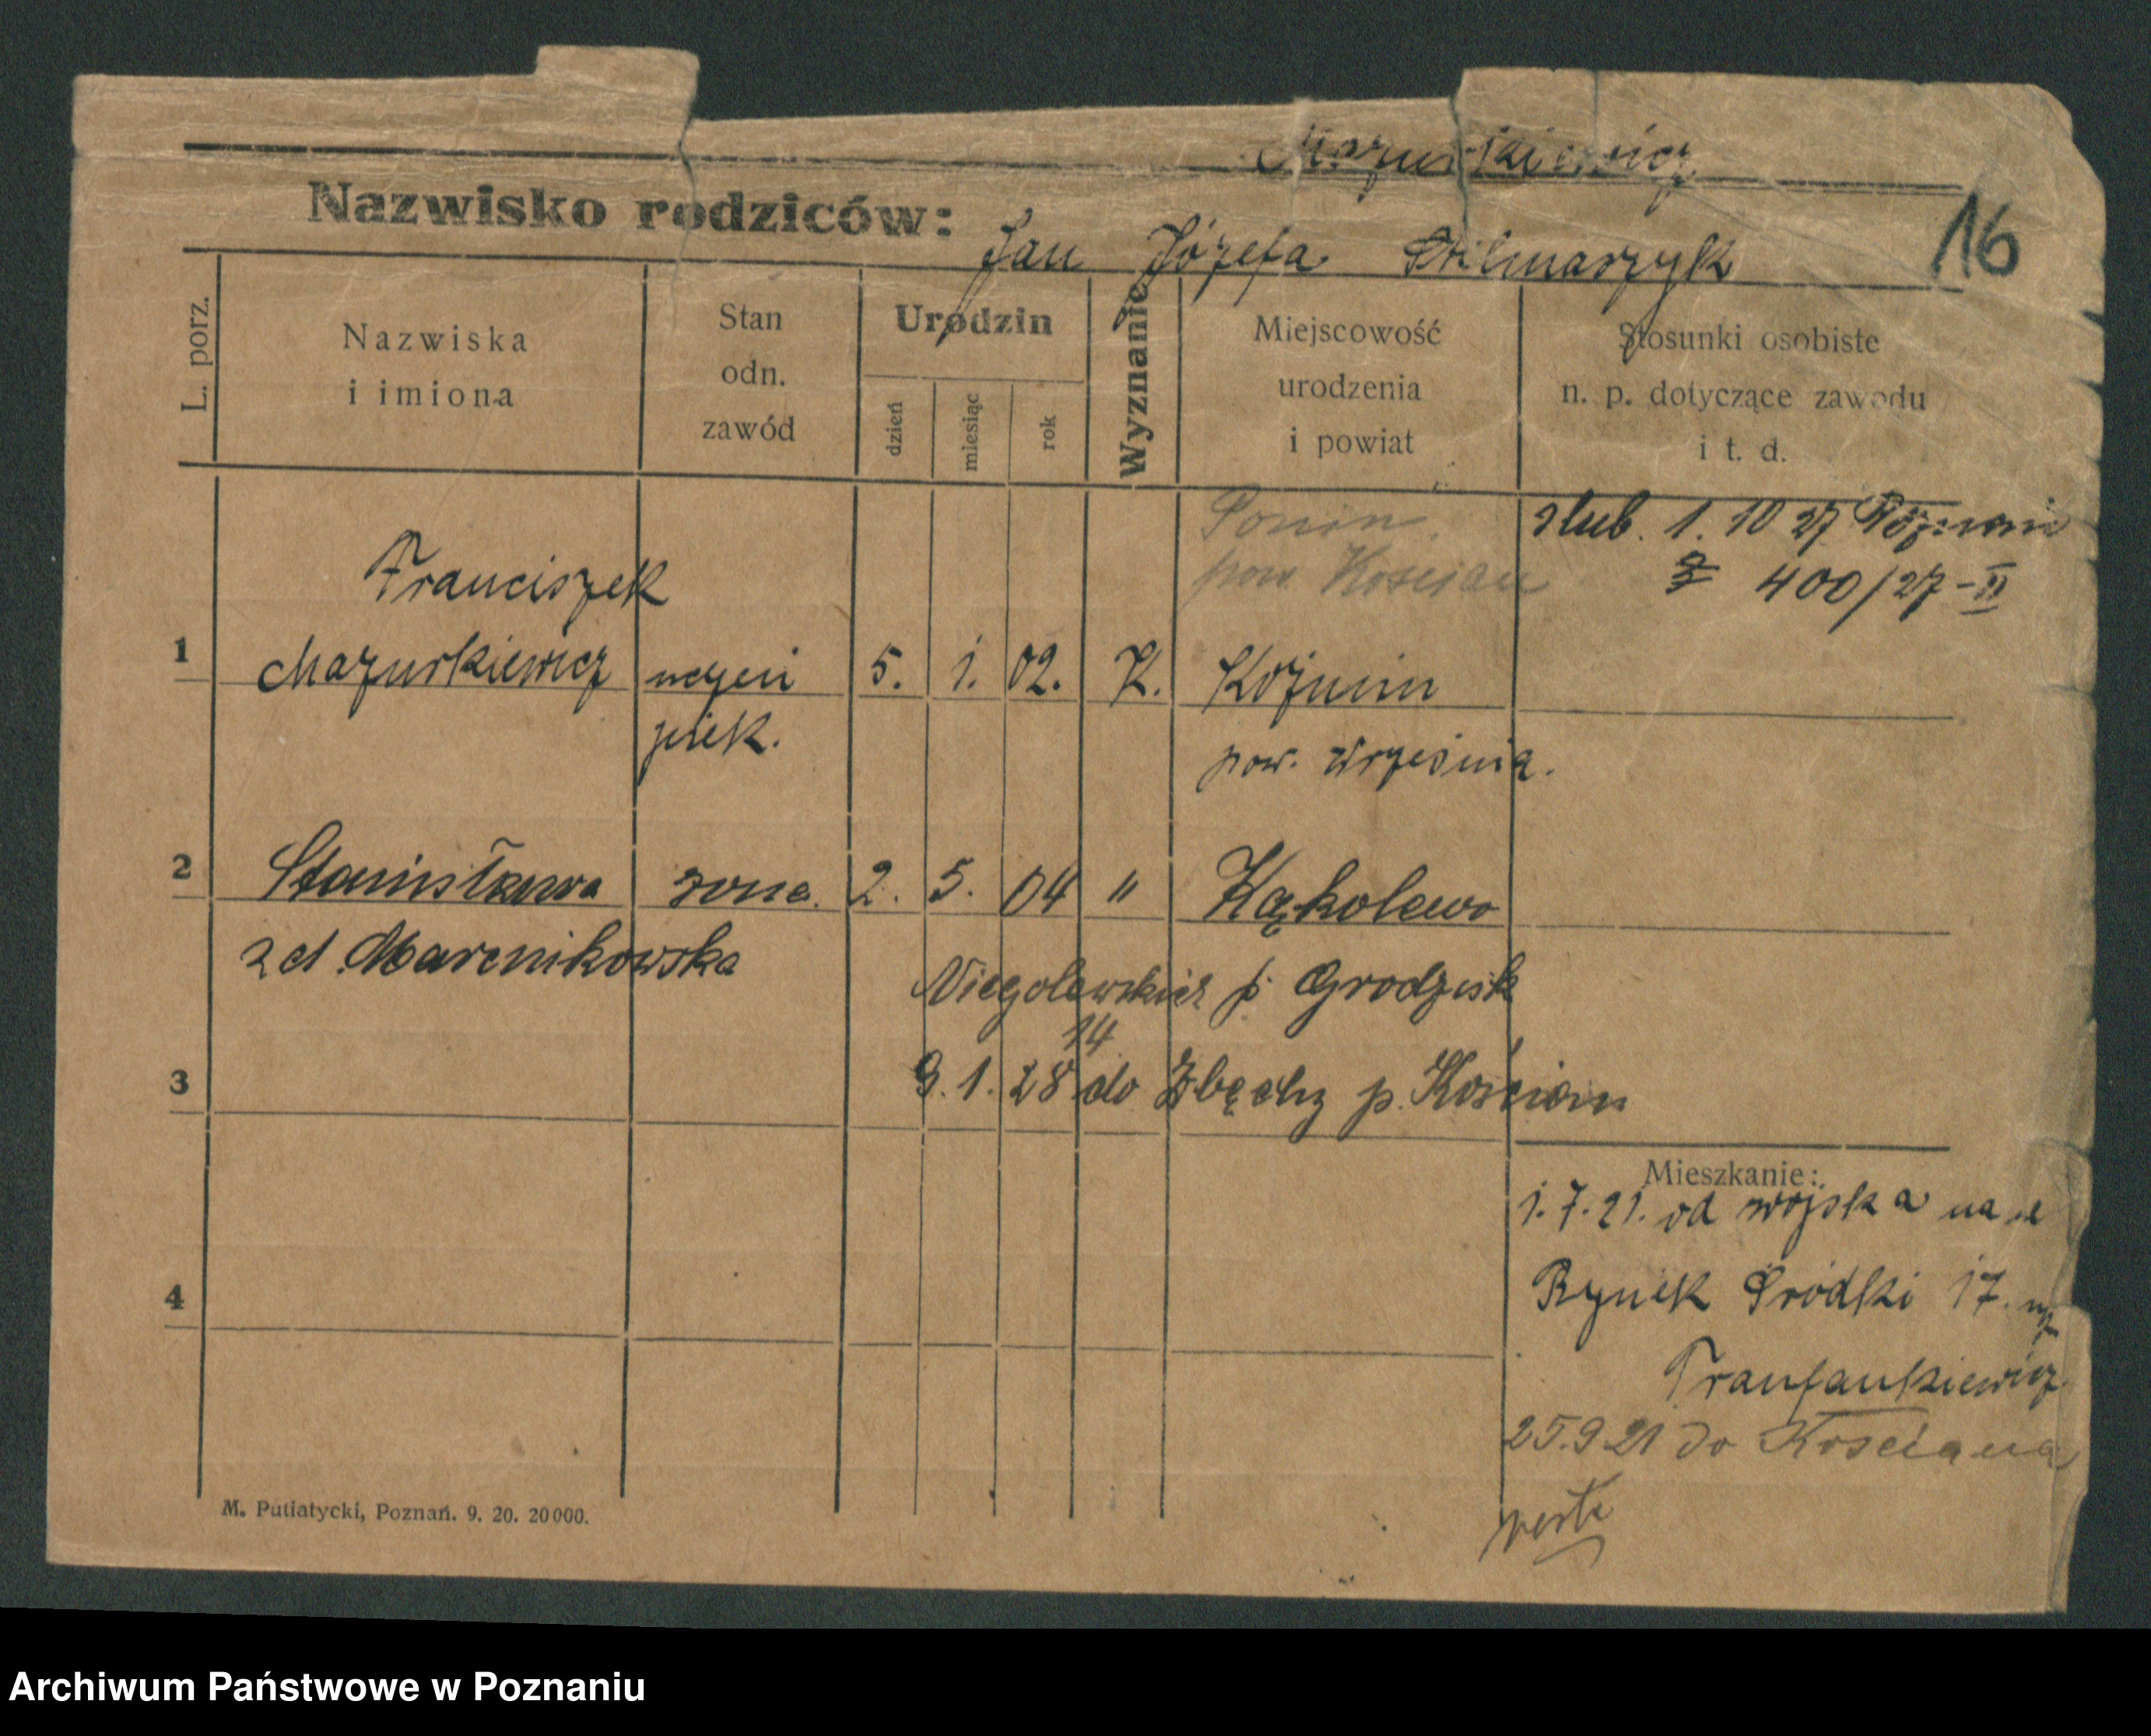 Mazurkiewicz
Nazwisko rodziców:
Jan Józefa
16
L. porz.
Nazwiska
i imiona
Stan
odn.
zawód
Urodzin
dzień
miesiąc
rok
Wyznanie
Miejscowość
urodzenia
i powiat
Stosunki osobiste
n. p. dotyczące zawodu
i t. d.
Ponin
pow. Kościan
ślub. 1. 10 27 Poznań
400/27-II
1
Franciszek
Mazurkiewicz
uczeń
piek.
5. 1. 02. K.
Koźmin
pow. Września.
2
Stanisława
żona. 2. 5. 04 "
Kąkolewo
z d. Marcnikowska
p. Grodzisk
14
3
9. 1. 28 do Zbęchy p. Kościan
Mieszkanie:
1. 7. 21. od wojska na
4
Rynek Śródki 17.
25.9 21 do Kościana
M. Putiatycki, Poznań. 9. 20. 20000.
Archiwum Państwowe w Poznaniu